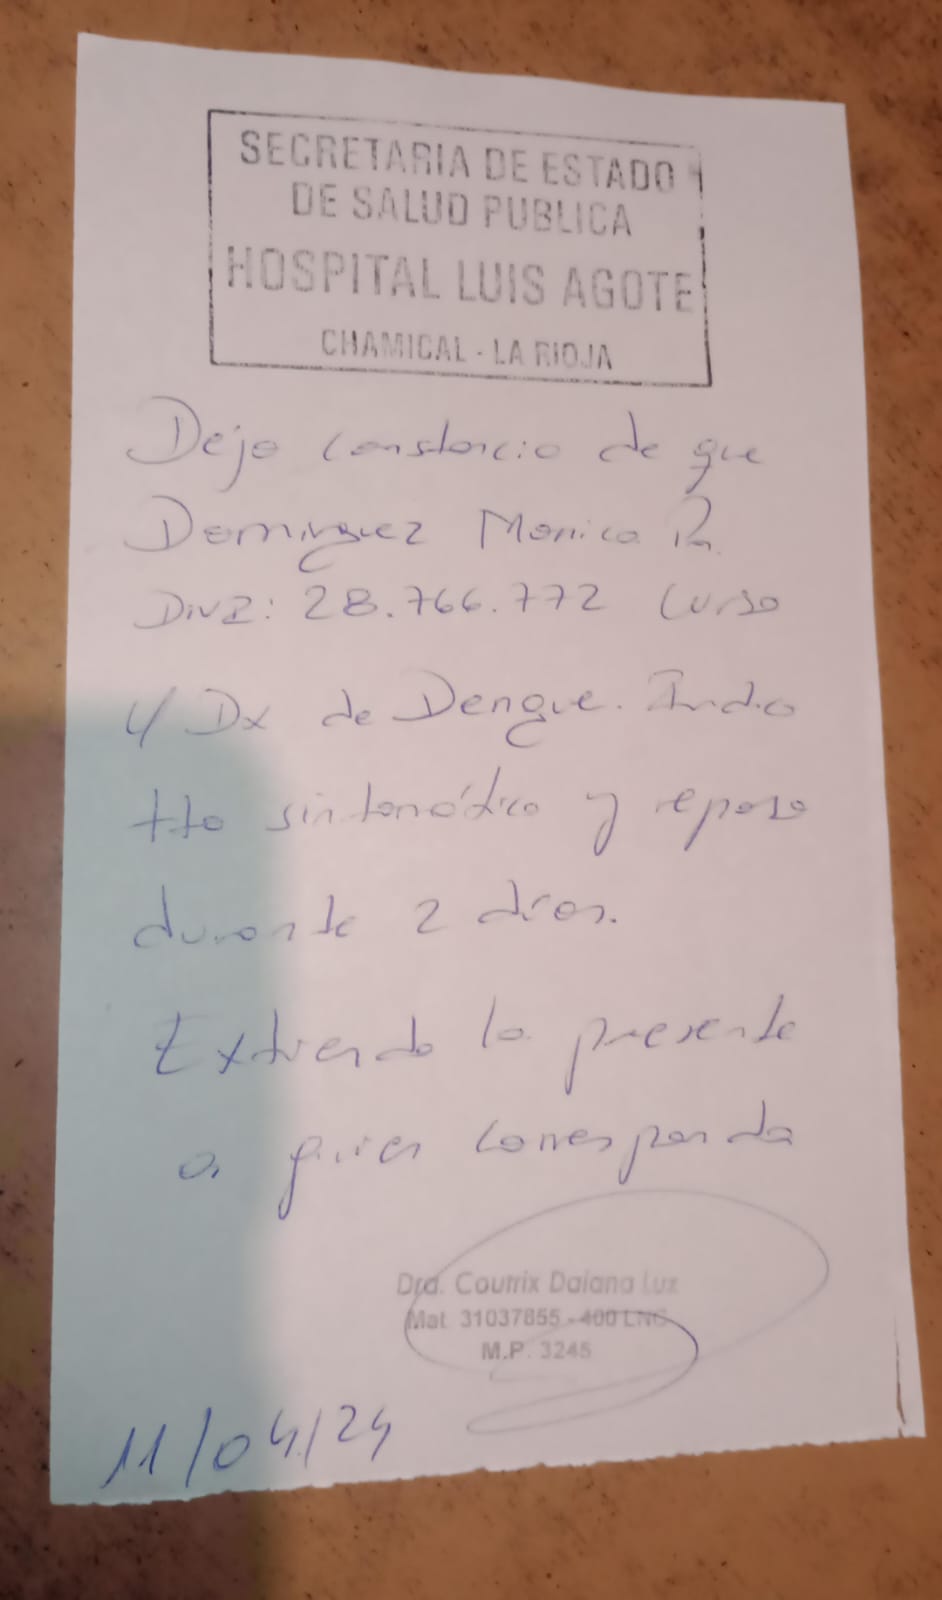 SECRETARIA DE ESTADO
DE SALUD PUBLICA
HOSPITAL LUIS AGOTE
CHAMICAL - LA RIOJA
Dejo constancia de que
Dominguez Monica R.
DNI: 28.766.772 Curso
c/ Dx de Dengue. Indico
tto sintomático y reposo
durante 2 días.
Extiendo la presente
a quien corresponda
Dra. Coutrix Daiana Luz
Mat. 31037855 - 400 LNG
M.P. 3245
11/04/24